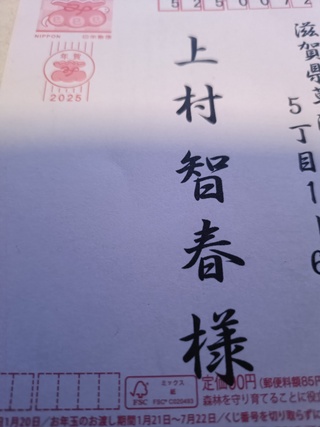 5250072
滋賀県草
5丁目1
6
上村智春様
年賀
2025
ミックス
紙
FSC
FSC® C020493
定価90円(郵便料額85円
森林を守り育てることに役
1月20日/お年玉のお渡し期間1月21日~7月22日/くじ番号を切り取らずに